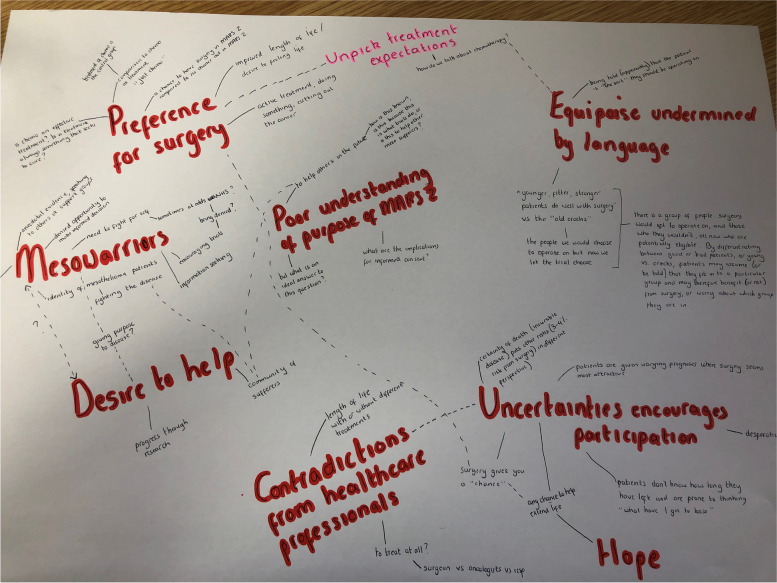 Unpick treatment
expectations
how do we talk about chemotherapy?
improved length of life/
desire to prolong life
active treatment, doing
something, cutting out
the cancer
is chemo to have surgery in MARS 2
compared to no chemo
comparison to chemo
as treatment
"just chemo"
the control group
is chemo an effective
treatment? Is a treatment
always something that
to cure?
Preference
for surgery
being told (apparently) that the patient
is "the sort" they should be operating on
Equipoise undermined
by language
"younger, fitter, stronger
patients do well with surgery"
vs the "old crocks"
the people we would choose
to operate on but now we
let the trial choose
There is a group of people surgeons
would opt to operate on, and those
who they wouldn't, all now who are
potentially eligible. By differentiating
between good or bad patients, or young
vs. crocks, patients may assume (or
be told) that they fit into a particular
group and may perceive benefit (or not)
from surgery, or worry about which group
they are in
to help others in the future
how is this known,
is this because this
is what trials do, or
is this to help other
meso sufferers?
Poor understanding
of purpose of MARS 2
but what is an
ideal answer to
this question?
what are the implications
for informed consent?
anecdotal evidence, speaking
to others at support groups
desired opportunity to
make informed decision
need to fight for
sometimes at odds
being denied?
encouraging trial
information seeking
Mesowarriors
identity of mesothelioma patients
fighting the disease
?
giving purpose
to disease?
Desire to help
community of
sufferers
progress through
research
length of life
with or without different
treatments
Contradictions
from healthcare
professionals
to treat at all?
surgeon vs oncologists vs
certainty of death (incurable
disease) puts other risks (3-4%
risk from surgery) in different
perspective
patients are given varying prognoses when surgery seems
most attractive?
Uncertainties encourages
participation
surgery gives you
a "chance"
any chance to help
extend life
patients don't know how long they
have left and are prone to thinking
"what have I got to lose"
Hope